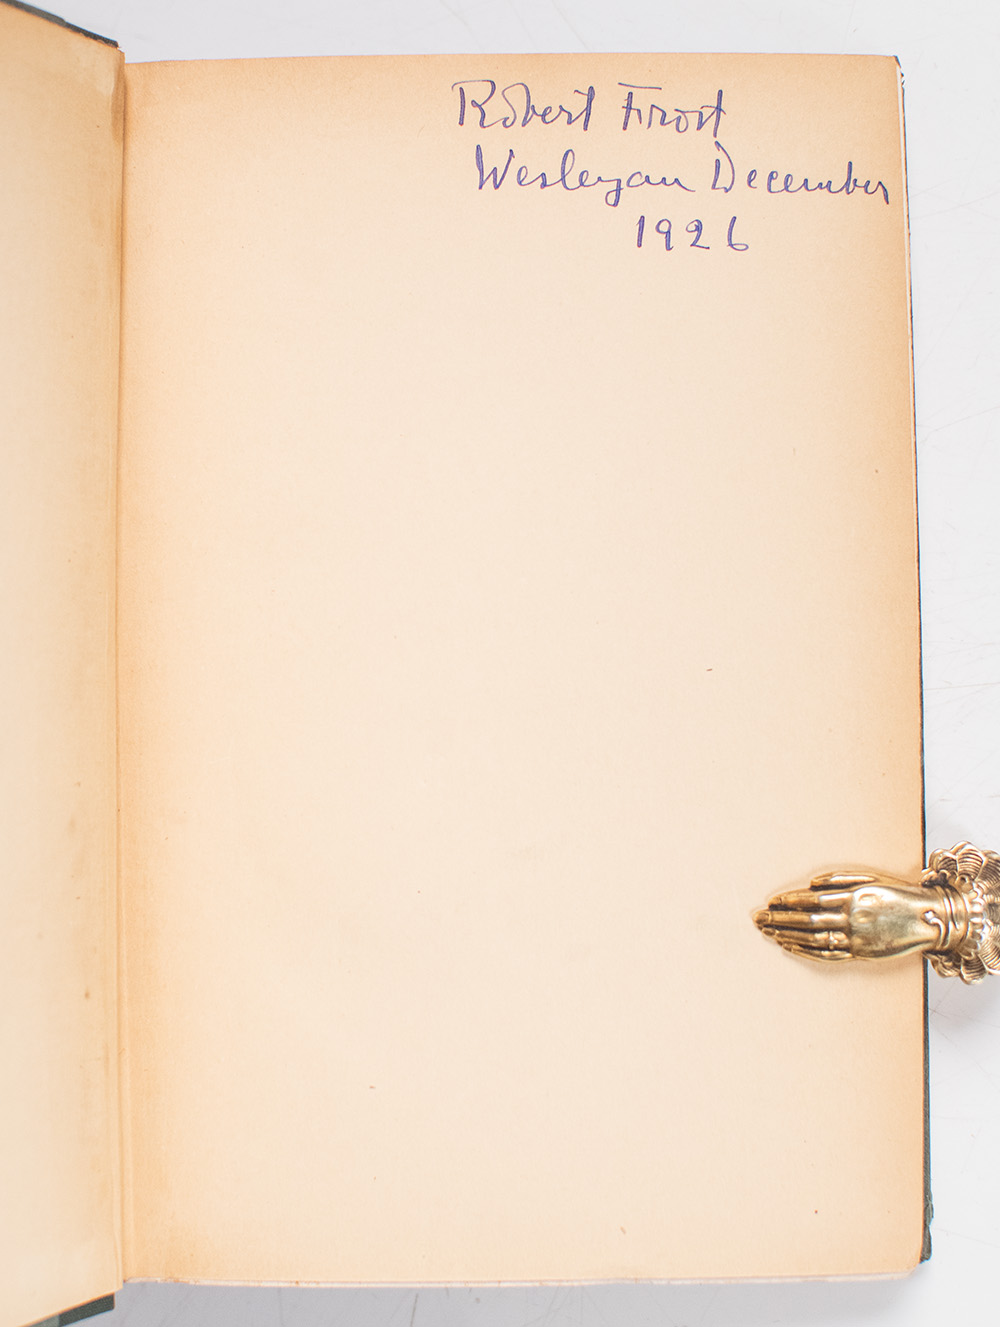 Robert Frost
Wesleyan December
1926